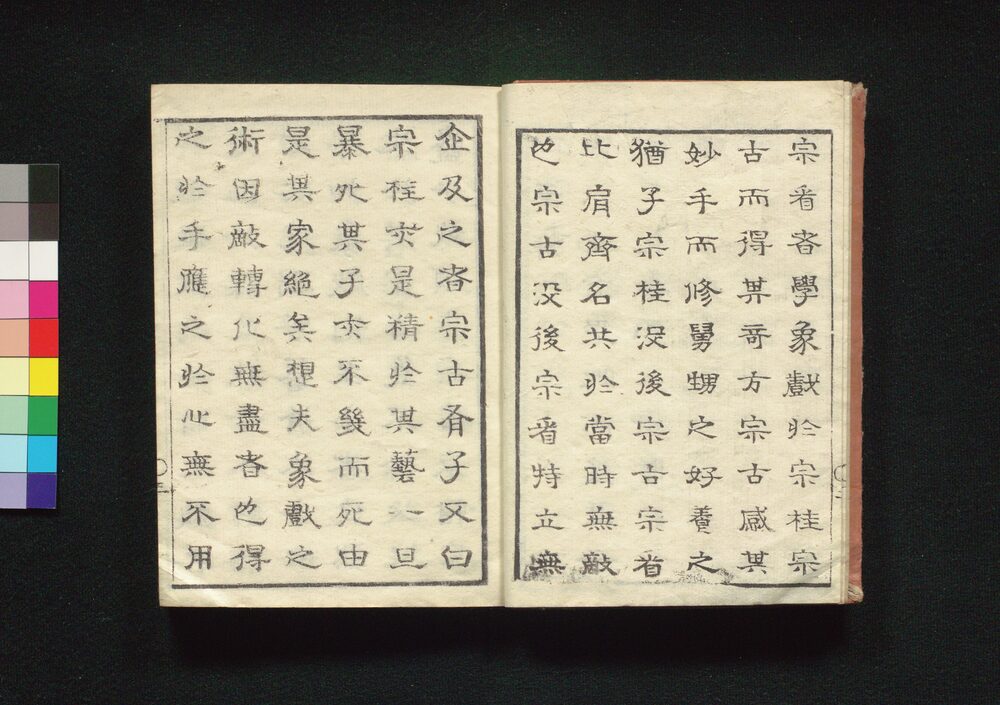 宗看者學象戲於宗桂宗
古而得其奇方宗古感其
妙手而修舅甥之好養之
猶子宗桂没後宗古宗看
比肩齊名共於當時無敵
也宗古没後宗看特立無
企及之者宗古有子又曰
宗桂亦是精於其藝一旦
暴死其子亦不幾而死由
是其家絶矣想夫象戲之
術因敵轉化無盡者也得
之於手應之於心無不用